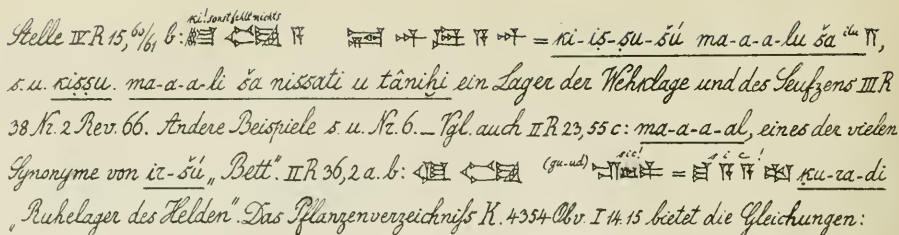 Stelle IV R 15, 60/61 b: ki! sonst fehlt nichts = ki-iṣ-ṣu-šú ma-a-a-lu ša ilu 𒀀,
s. u. kiṣṣu. ma-a-a-li ša nissati u tâniḫi ein Lager der Wehklage und des Seufzens III R
38 Nr. 2 Rev. 66. Andere Beispiele s. u. Nr. 6. _ Vgl. auch II R 23, 55 c: ma-a-a-al, eines der vielen
Synonyme von ir-šú „Bett“. II R 36, 2 a. b: (gu-ud) sic! = sic! ḳu-ra-di
„Ruhelager des Helden“. Das Pflanzenverzeichniſs K. 4354 Obv. I 14. 15 bietet die Gleichungen: